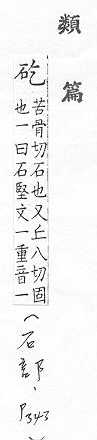 類篇
矻
苦骨切石也又丘八切固
也一曰石堅文一重音一
（石部，P343）